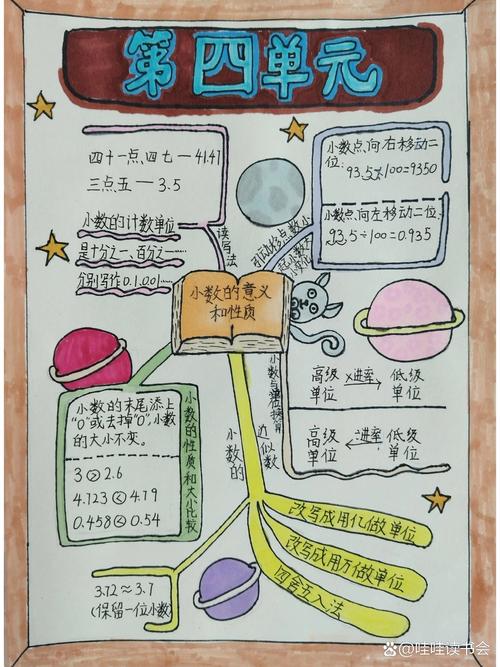 第四单元
四十一点四七—41.47
三点五—3.5
小数的计数单位
是十分之一、百分之一……
分别写作0.1、0.01……
读写法
小数点向右移动二
位:
93.5×100=9350
小数点向左移动二位:
93.5÷100=0.935
小数的意义
和性质
高级
单位
×进率
低级
单位
高级
单位
÷进率
低级
单位
小数与单位换算
小数的末尾添上
"0"或去掉"0",小数
的大小不变。
3>2.6
4.123<4.19
0.458<0.54
小数的性质和大小比较
小数的
近似数
改写成用亿做单位
改写成用万做单位
四舍五入法
3.72≈3.7
(保留一位小数)
哇哇读书会